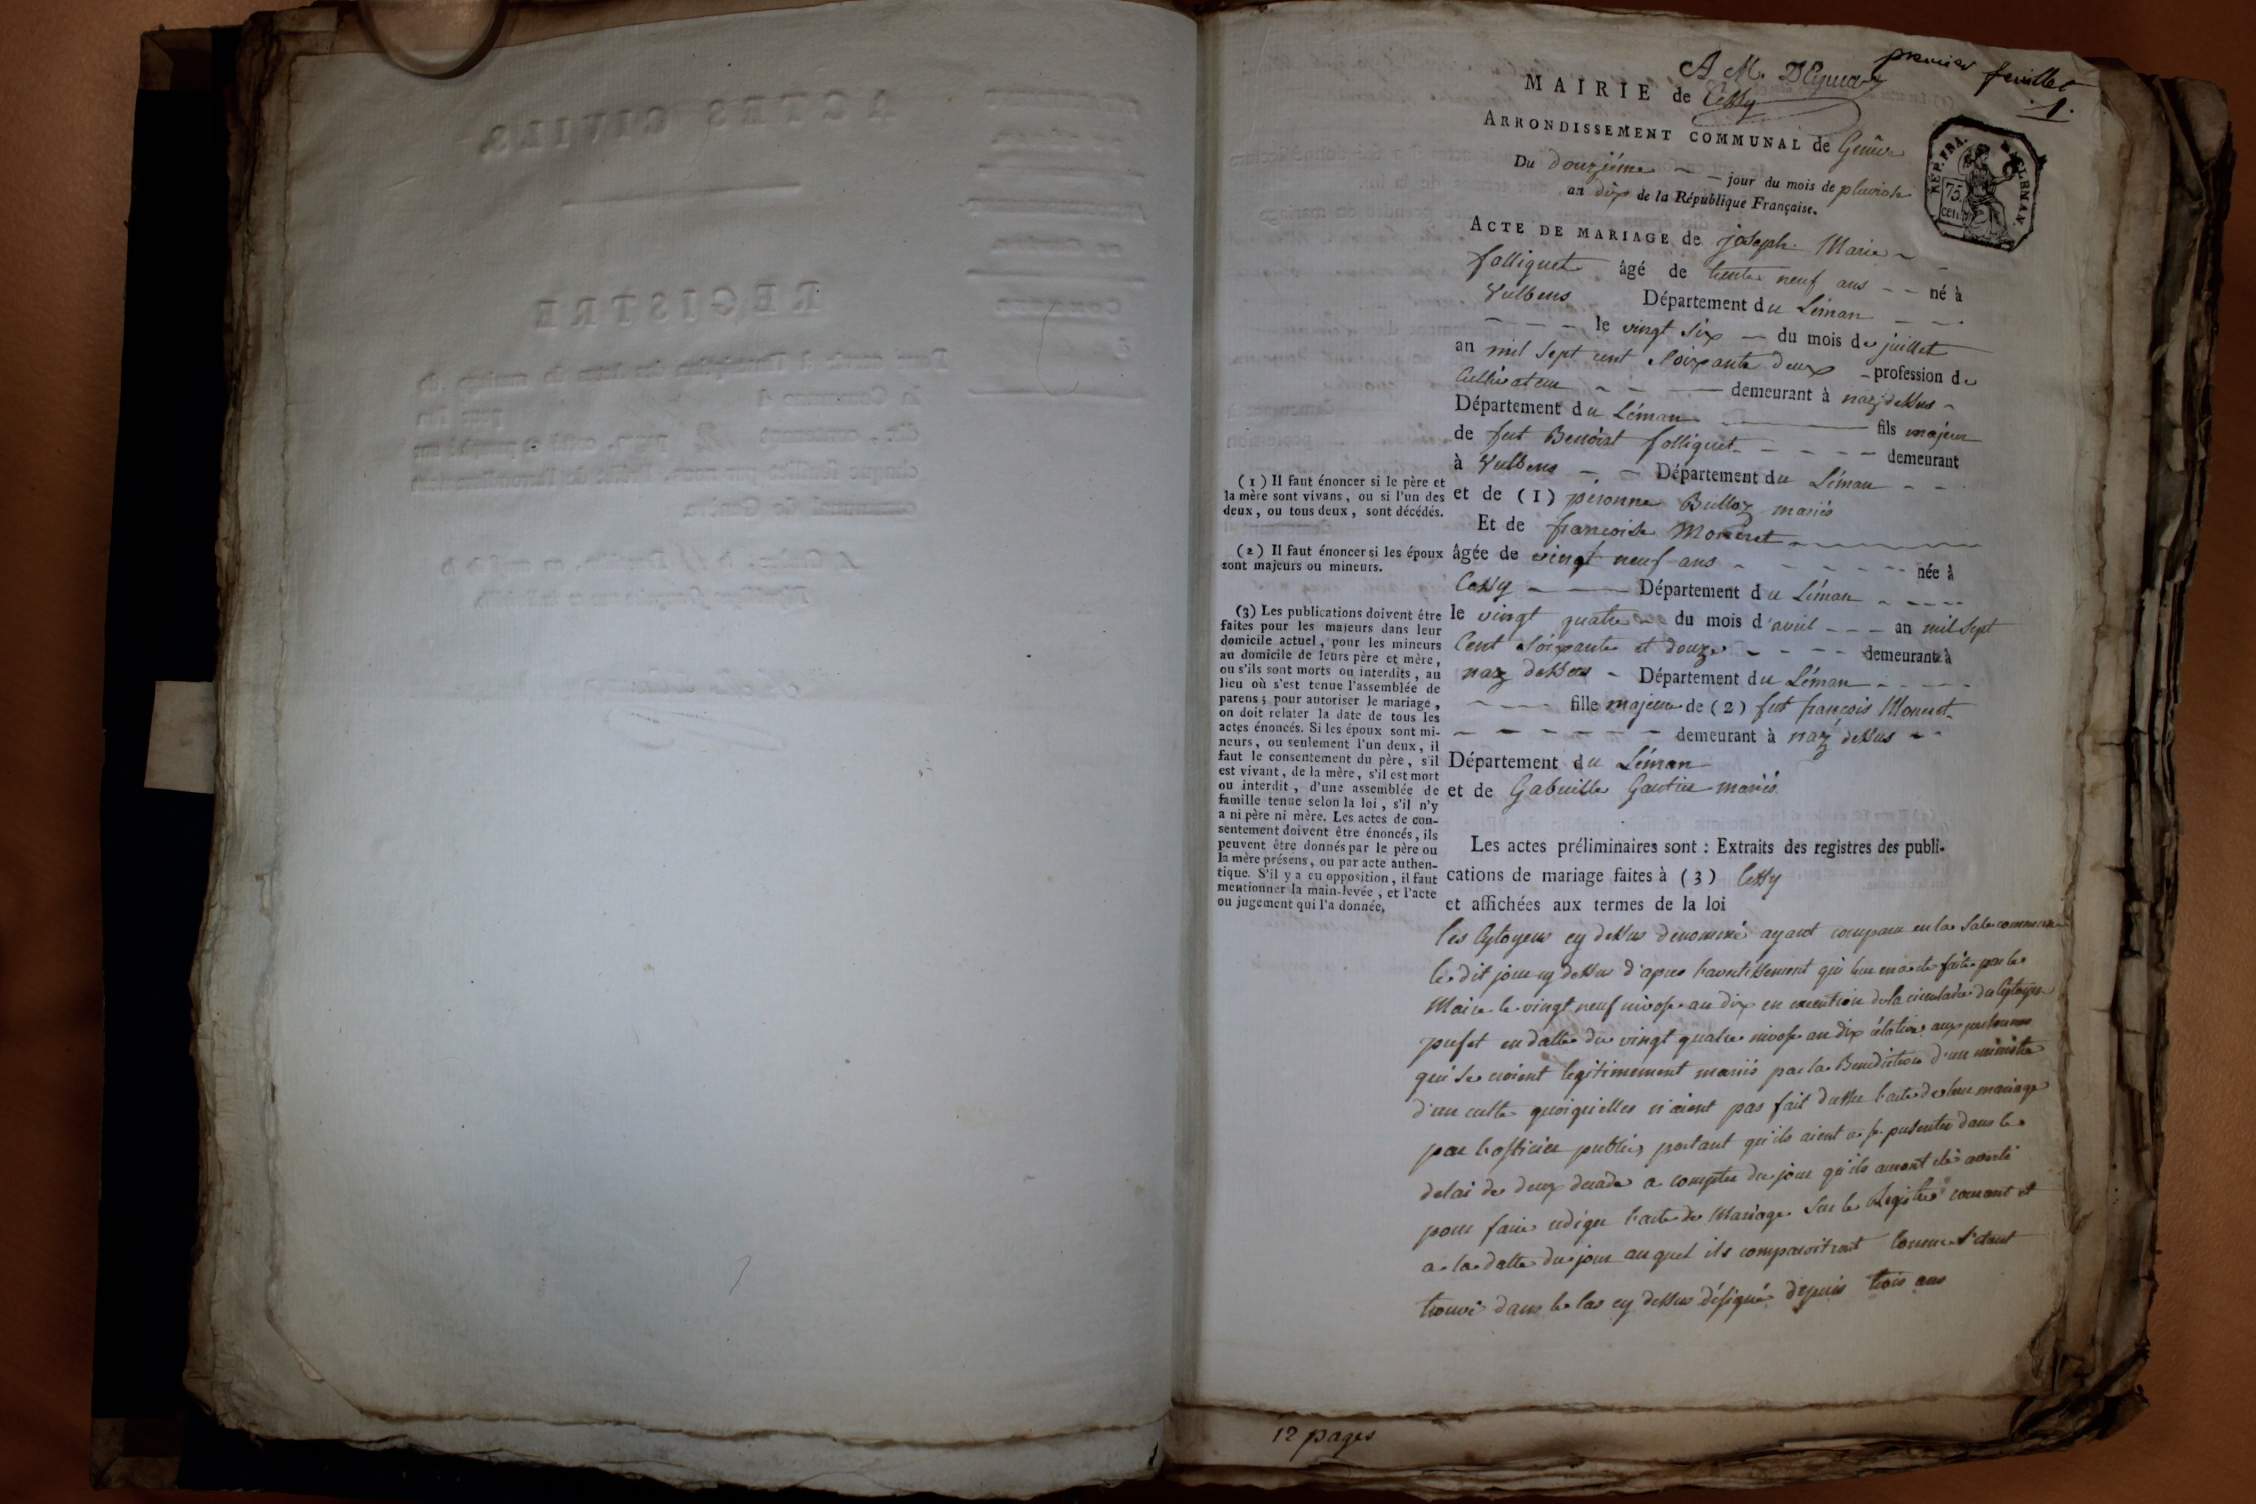 premier feuillet
1.
A. M. DEymar
MAIRIE de Cessy
ARRONDISSEMENT COMMUNAL de Genêve
Du douziéme jour du mois de pluviose
an dix de la République Française.
RÉP. FRA.
75
CEN.
LEMAN.
ACTE DE MARIAGE de joseph Marie
folliquet âgé de trente neuf ans né à
Vulbens Département du Léman
le vingt six du mois de juillet
an mil sept cent soixante deux profession de
Cultivateur demeurant à naz dessus
Département du Léman fils majeur
de feu Benoist folliquet demeurant
à Vulbens Département du Léman
et de (1) péronne Bulloz mariés
Et de françoise Moneret
âgée de vingt neuf ans née à
Cessy Département du Léman
le vingt quatre du mois d'avril an mil sept
Cent soixante et douze demeurante à
naz dessus Département du Léman
fille majeure de (2) feu françois Moneret
demeurant à naz dessus
Département du Léman
et de Gabrielle Gautier mariés
Les actes préliminaires sont : Extraits des registres des publi-
cations de mariage faites à (3) Cessy
et affichées aux termes de la loi
les Cytoyens cy dessus denommé ayant comparu en la sale commune
le dit jour cy dessus d'apres l'avertissement qui leur en a eté faite par le
Maire le vingt neuf nivose an dix en execution de la circulaire du Cytoyen
prefet en datte du vingt quatre nivose an dix rélative aux personnes
qui se croient legitimement mariés par la Benediction d'un ministre
d'un culte quoiquelles n'aient pas fait dresser l'acte de leur mariage
par l'officier public, portant qu'ils aient a se presenter dans le
delai de deux decade a compter du jour qu'ils auront eté averti
pour faire rediger l'acte de Mariage sur le Registre courant et
a la datte du jour auquel ils comparoitront Comme s'etant
trouvé dans le Cas cy dessus désigné depuis trois ans
(1) Il faut énoncer si le père et
la mère sont vivans, ou si l'un des
deux, ou tous deux, sont décédés.
(2) Il faut énoncer si les époux
sont majeurs ou mineurs.
(3) Les publications doivent être
faites pour les majeurs dans leur
domicile actuel, pour les mineurs
au domicile de leurs père et mère,
ou s'ils sont morts ou interdits, au
lieu où s'est tenue l'assemblée de
parens ; pour autoriser le mariage,
on doit relater la date de tous les
actes énoncés. Si les époux sont mi-
neurs, ou seulement l'un deux, il
faut le consentement du père, s'il
est vivant, de la mère, s'il est mort
ou interdit, d'une assemblée de
famille tenue selon la loi, s'il n'y
a ni père ni mère. Les actes de con-
sentement doivent être énoncés, ils
peuvent être donnés par le père ou
la mère présens, ou par acte authen-
tique. S'il y a eu opposition, il faut
mentionner la main-levée, et l'acte
ou jugement qui l'a donnée.
12 pages